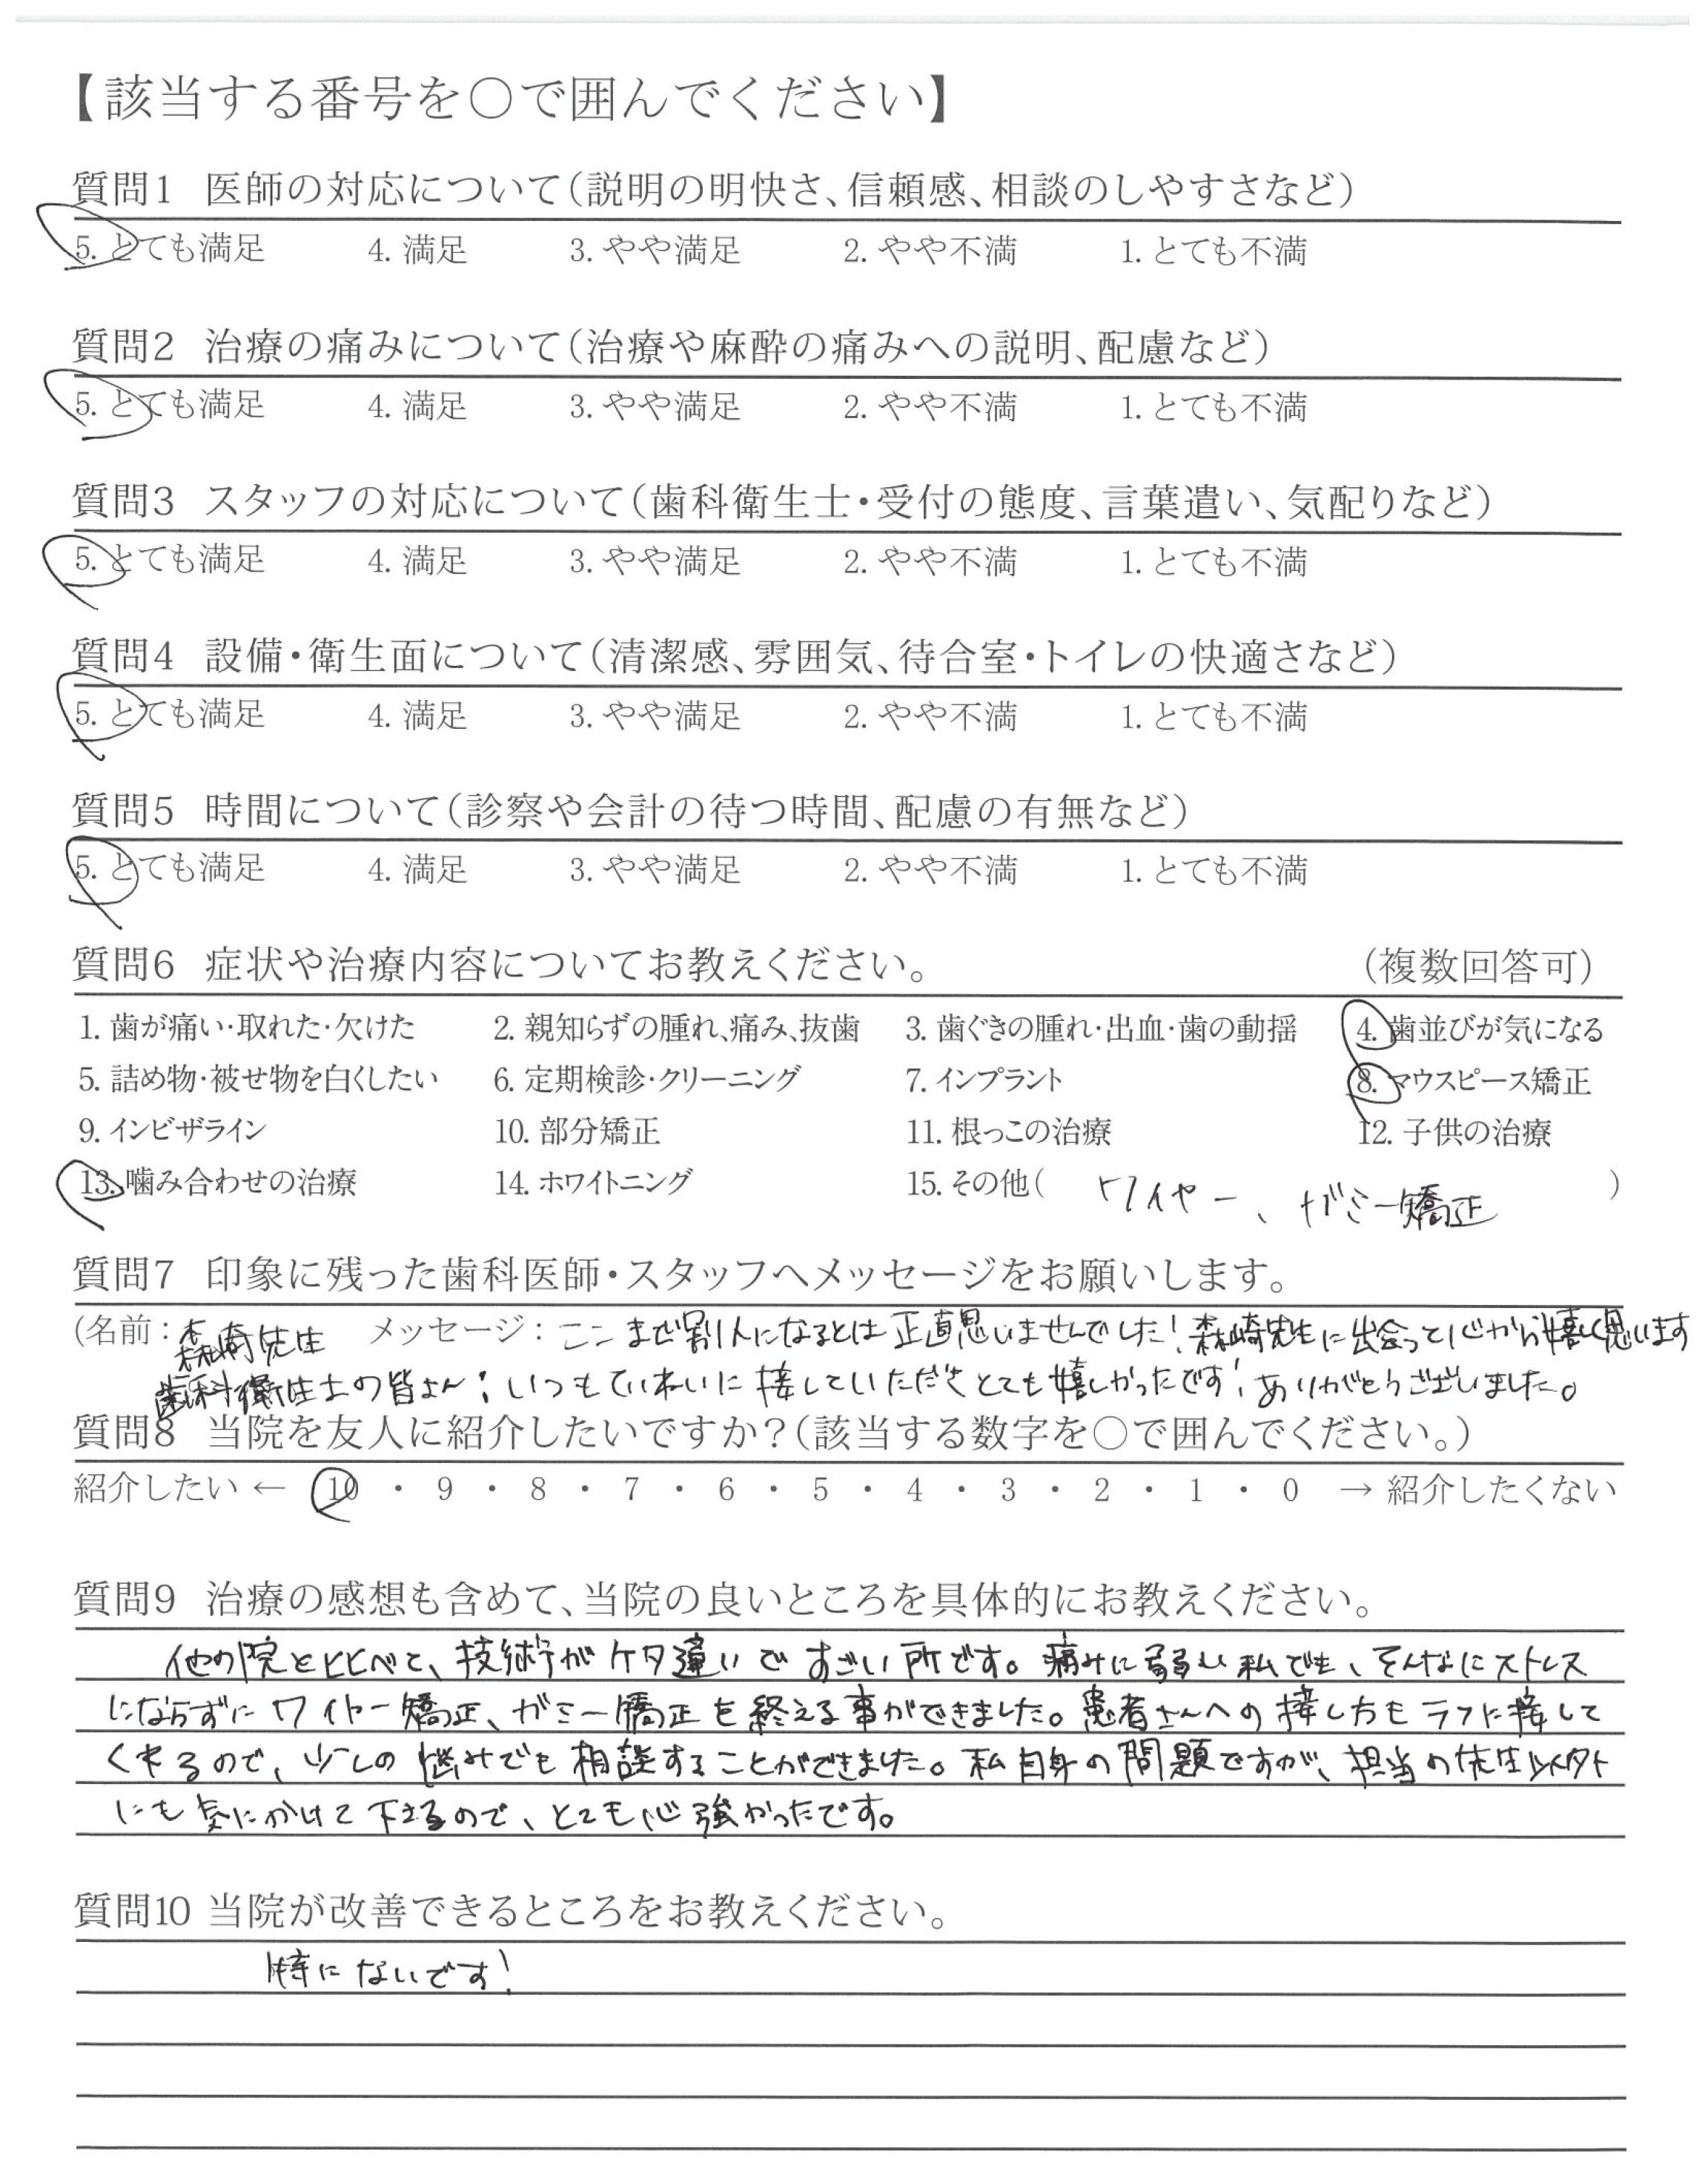 【該当する番号を○で囲んでください】
質問1 医師の対応について（説明の明快さ、信頼感、相談のしやすさなど）
5. とても満足 4. 満足 3. やや満足 2. やや不満 1. とても不満
質問2 治療の痛みについて（治療や麻酔の痛みへの説明、配慮など）
5. とても満足 4. 満足 3. やや満足 2. やや不満 1. とても不満
質問3 スタッフの対応について（歯科衛生士・受付の態度、言葉遣い、気配りなど）
5. とても満足 4. 満足 3. やや満足 2. やや不満 1. とても不満
質問4 設備・衛生面について（清潔感、雰囲気、待合室・トイレの快適さなど）
5. とても満足 4. 満足 3. やや満足 2. やや不満 1. とても不満
質問5 時間について（診察や会計の待つ時間、配慮の有無など）
5. とても満足 4. 満足 3. やや満足 2. やや不満 1. とても不満
質問6 症状や治療内容についてお教えください。 （複数回答可）
1. 歯が痛い・取れた・欠けた 2. 親知らずの腫れ、痛み、抜歯 3. 歯ぐきの腫れ・出血・歯の動揺 4. 歯並びが気になる
5. 詰め物・被せ物を白くしたい 6. 定期検診・クリーニング 7. インプラント 8. マウスピース矯正
9. インビザライン 10. 部分矯正 11. 根っこの治療 12. 子供の治療
13. 噛み合わせの治療 14. ホワイトニング 15. その他（ ワイヤー、ガミー矯正 ）
質問7 印象に残った歯科医師・スタッフへメッセージをお願いします。
（名前：森崎先生 メッセージ：ここまで別人になるとは正直思いませんでした！森崎先生に出会って心から嬉しく思います
歯科衛生士の皆さん：いつもていねいに接していただきとても嬉しかったです！ありがとうございました。
質問8 当院を友人に紹介したいですか？（該当する数字を○で囲んでください。）
紹介したい ← 10 ・ 9 ・ 8 ・ 7 ・ 6 ・ 5 ・ 4 ・ 3 ・ 2 ・ 1 ・ 0 → 紹介したくない
質問9 治療の感想も含めて、当院の良いところを具体的にお教えください。
他の院と比べて、技術がケタ違いですごい所です。痛みに弱い私でも、そんなにストレス
にならずにワイヤー矯正、ガミー矯正を終える事ができました。患者さんへの接し方もラフに接して
くれるので、少しの悩みでも相談することができました。私自身の問題ですが、担当の先生以外
にも気にかけて下さるので、とても心強かったです。
質問10 当院が改善できるところをお教えください。
特にないです！